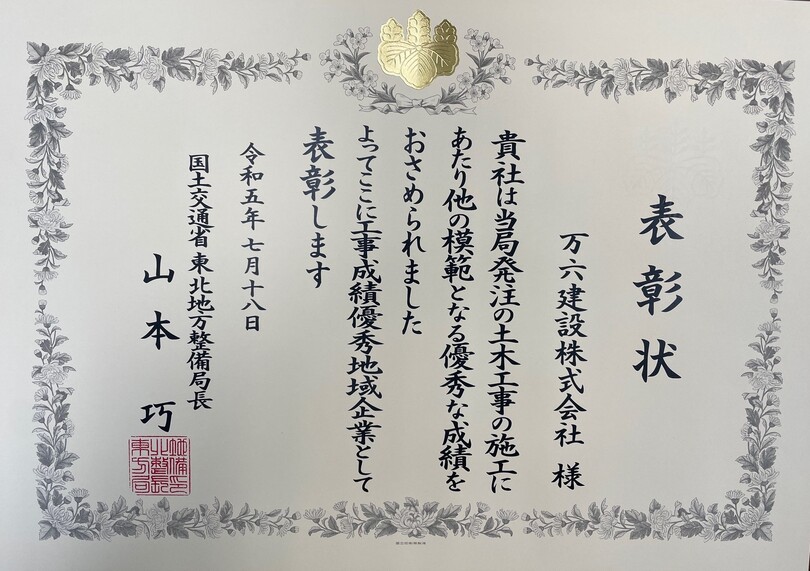 表彰状
万六建設株式会社 様
貴社は当局発注の土木工事の施工に
あたり他の模範となる優秀な成績を
おさめられました
よってここに工事成績優秀地域企業として
表彰します
令和五年七月十八日
国土交通省東北地方整備局長
山本 巧